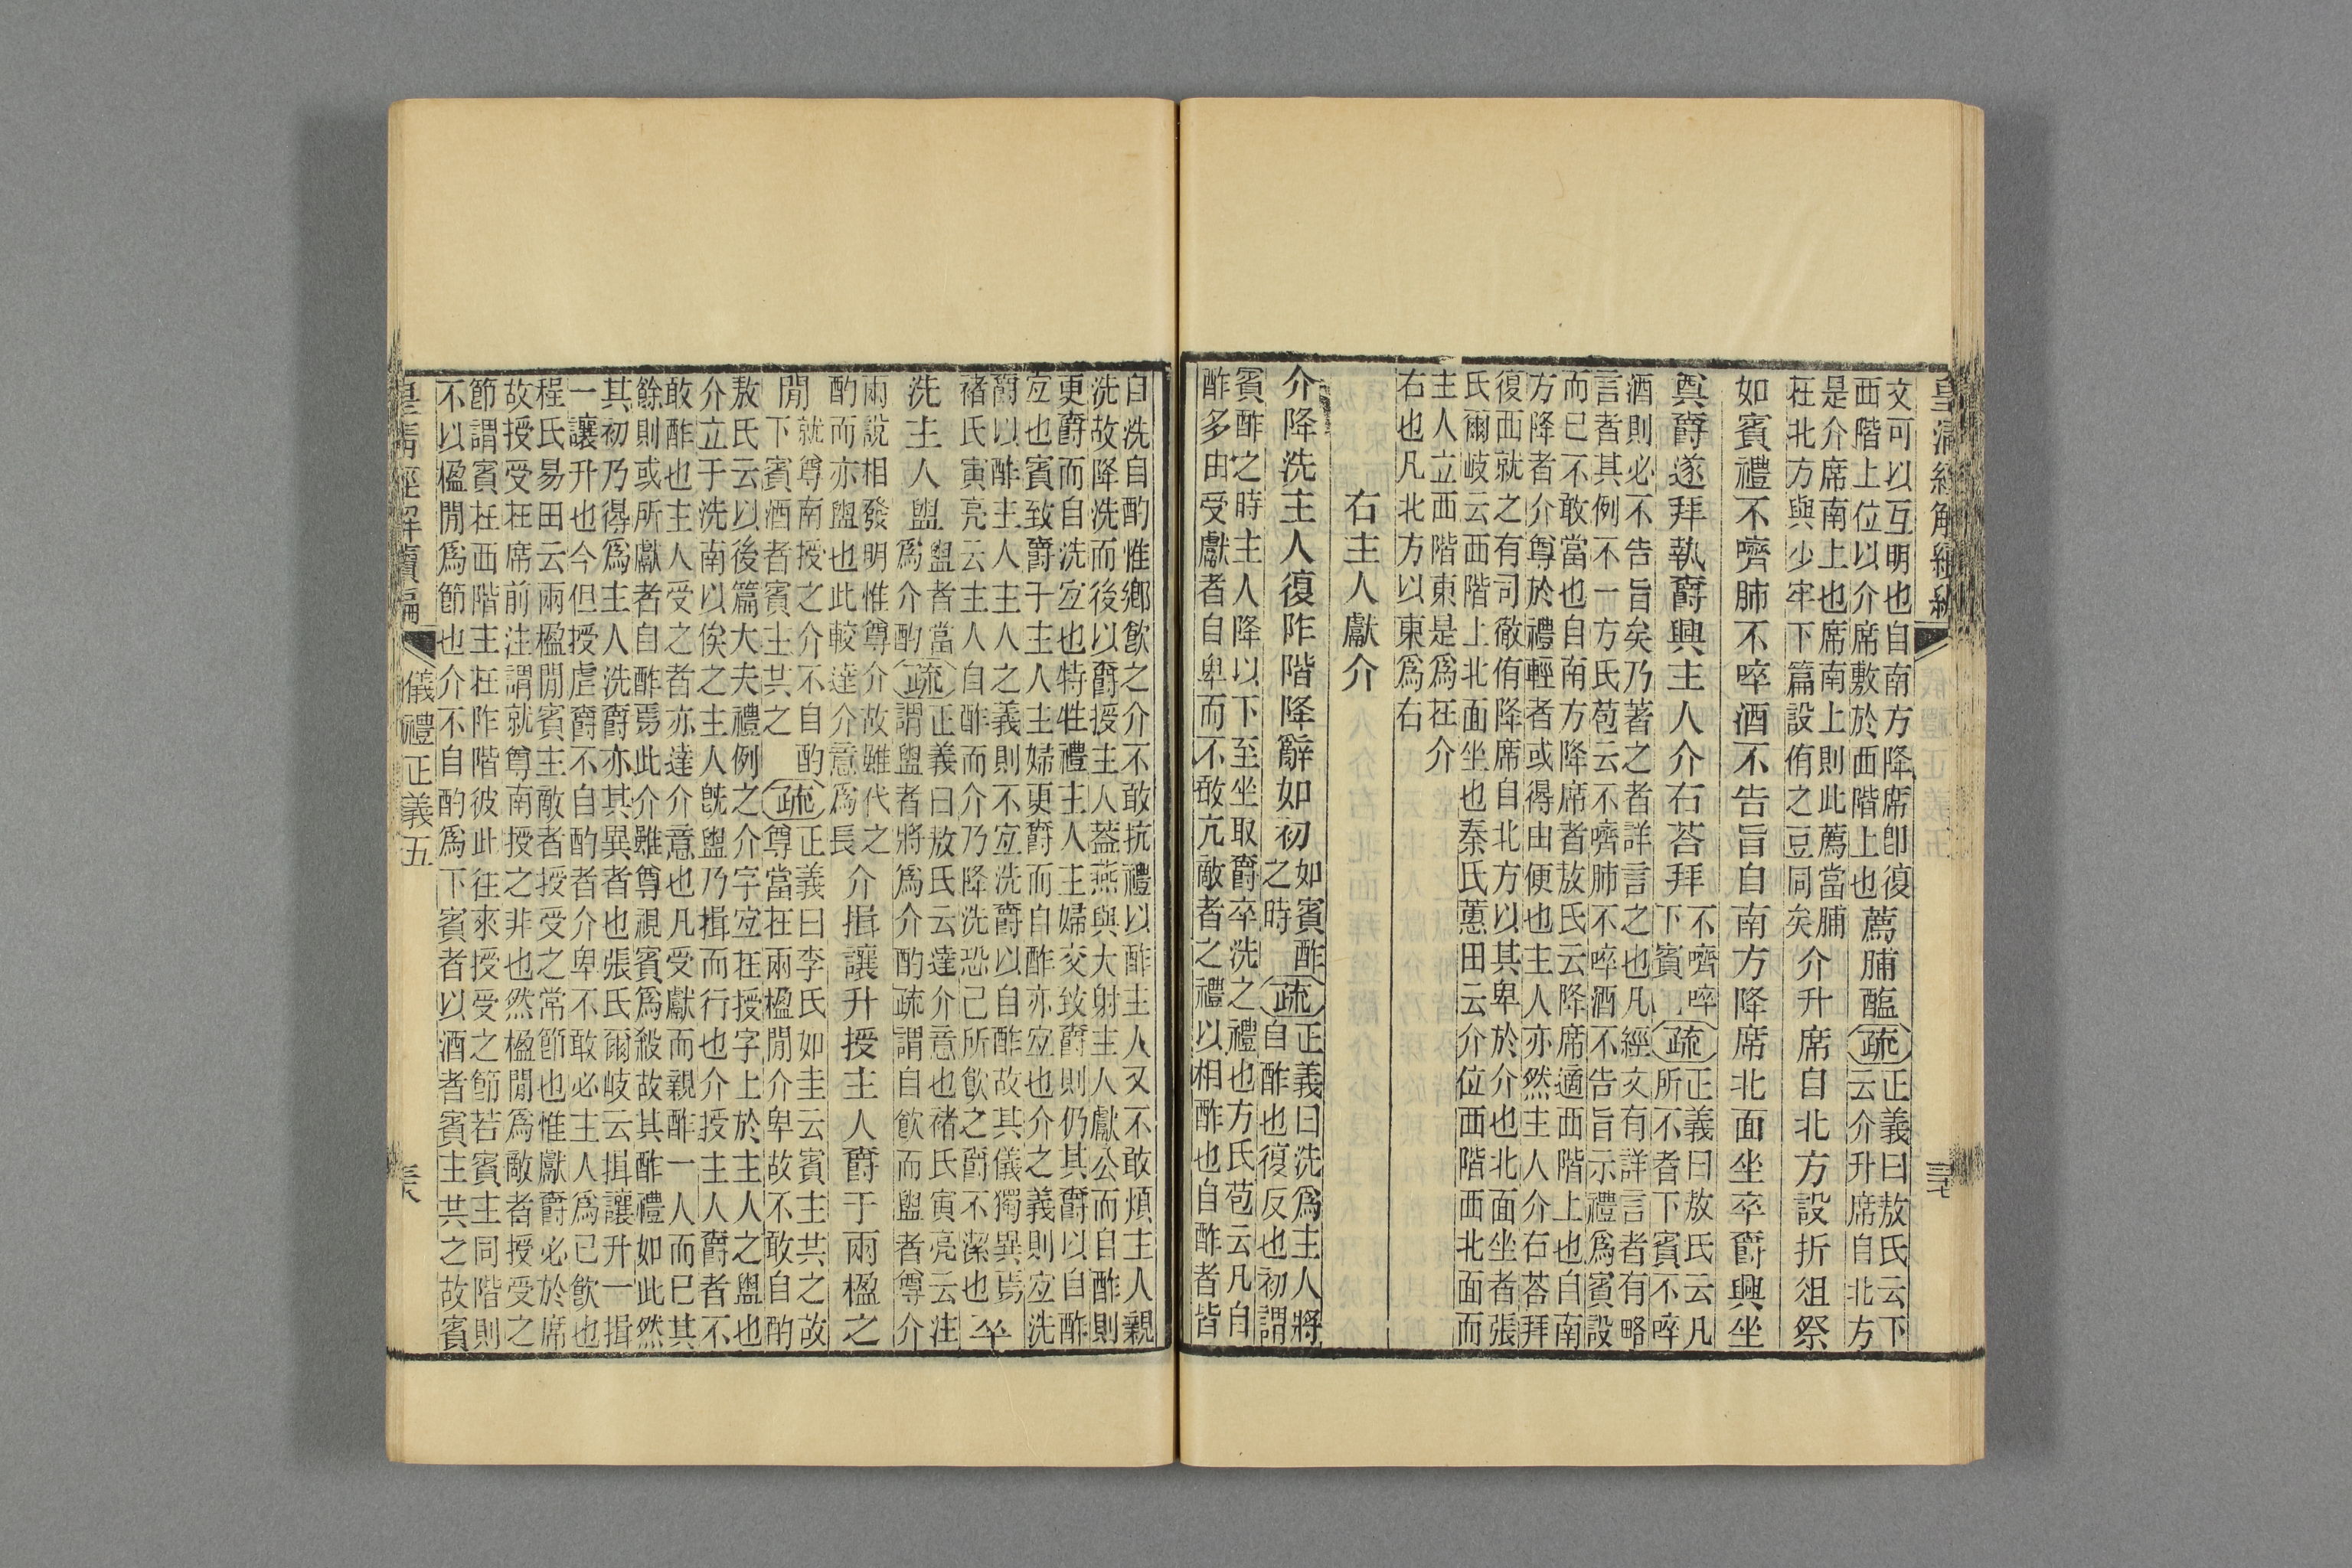 皇清經解續編
三七
文可以互明也自南方降席卽復
西階上位以介席敷於西階上也
薦脯醢
疏
正義曰敖氏云下
云介升席自北方
是介席南上也席南上則此薦當脯
在北方與少牢下篇設侑之豆同矣
介升席自北方設折俎祭
如賓禮不嚌肺不啐酒不告旨自南方降席北面坐卒爵興坐
奠爵遂拜執爵興主人介右荅拜
不嚌啐
下賓
疏
正義曰敖氏云凡
所不者下賓不啐
酒則必不告旨矣乃著之者詳言之也凡經文有詳言者有略
言者其例不一方氏苞云不嚌肺不啐酒不告旨示禮爲賓設
而已不敢當也自南方降席者敖氏云降席適西階上也自南
方降者介尊於禮輕者或得由便也主人亦然主人介右荅拜
復西就之有司徹侑降席自北方以其卑於介也北面坐者張
氏爾岐云西階上北面坐也秦氏蕙田云介位西階西北面而
主人立西階東是爲在介
右也凡北方以東爲右
右主人獻介
介降洗主人復阼階降辭如初
如賓酢
之時
疏
正義曰洗爲主人將
自酢也復反也初謂
賓酢之時主人降以下至坐取爵卒洗之禮也方氏苞云凡自
酢多由受獻者自卑而不敢亢敵者之禮以相酢也自酢者皆
自洗自酌惟鄉飮之介不敢抗禮以酢主人又不敢煩主人親
洗故降洗而後以爵授主人葢燕與大射主人獻公而自酢則
更爵而自洗宐也特牲禮主人主婦交致爵則仍其爵以自酢
宐也賓致爵于主人主婦更爵而自酢亦宐也介之義則宐洗
爵以酢主人主人之義則不宐洗爵以自酢故其儀獨異焉
褚氏寅亮云主人自酢而介乃降洗恐己所飮之爵不潔也
卒
洗主人盥
盥者當
爲介酌
疏
正義曰敖氏云達介意也褚氏寅亮云注
謂盥者將爲介酌疏謂自飮而盥者尊介
兩說相發明惟尊介故雖代之
酌而亦盥也此較達介意爲長
介揖讓升授主人爵于兩楹之
閒
就尊南授之介不自酌
下賓酒者賓主共之
疏
正義曰李氏如圭云賓主共之故
尊當在兩楹閒介卑故不敢自酌
敖氏云以後篇大夫禮例之介字宐在授字上於主人之盥也
介立于洗南以俟之主人旣盥乃揖而行也介授主人爵者不
敢酢也主人受之者亦達介意也凡受獻而親酢一人而已其
餘則或所獻者自酢焉此介雖尊視賓爲殺故其酢禮如此然
其初乃得爲主人洗爵亦其異者也張氏爾岐云揖讓升一揖
一讓升也今但授虛爵不自酌者介卑不敢必主人爲己飮也
程氏易田云兩楹閒賓主敵者授受之常節也惟獻爵必於席
故授受在席前注謂就尊南授之非也然楹閒爲敵者授受之
節謂賓在西階主在阼階彼此往來授受之節若賓主同階則
不以楹閒爲節也介不自酌爲下賓者以酒者賓主共之故賓
皇清經解續編
儀禮正義五
三八